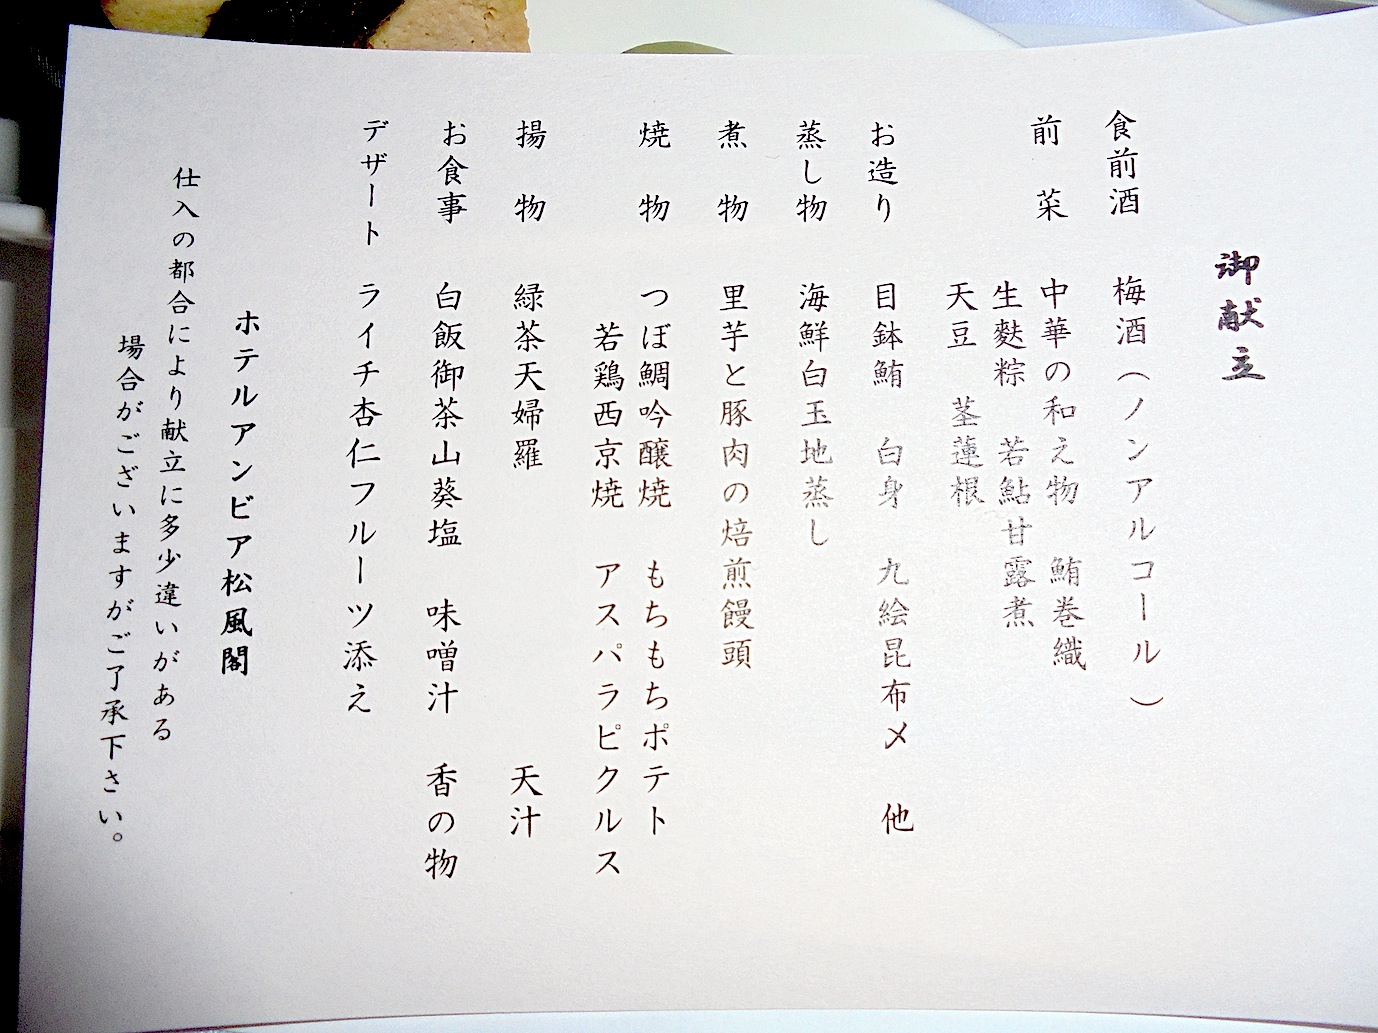 御献立
食前酒　梅酒（ノンアルコール）
前　菜　中華の和え物　鮪巻繊
生麩粽　若鮎甘露煮
天豆　茎蓮根
お造り　目鉢鮪　白身　九絵昆布〆　他
蒸し物　海鮮白玉地蒸し
煮　物　里芋と豚肉の焙煎饅頭
焼　物　つぼ鯛吟醸焼　もちもちポテト
若鶏西京焼　アスパラピクルス
揚　物　緑茶天婦羅　天汁
お食事　白飯御茶山葵塩　味噌汁　香の物
デザート　ライチ杏仁フルーツ添え
ホテルアンビア松風閣
仕入の都合により献立に多少違いがある
場合がございますがご了承下さい。